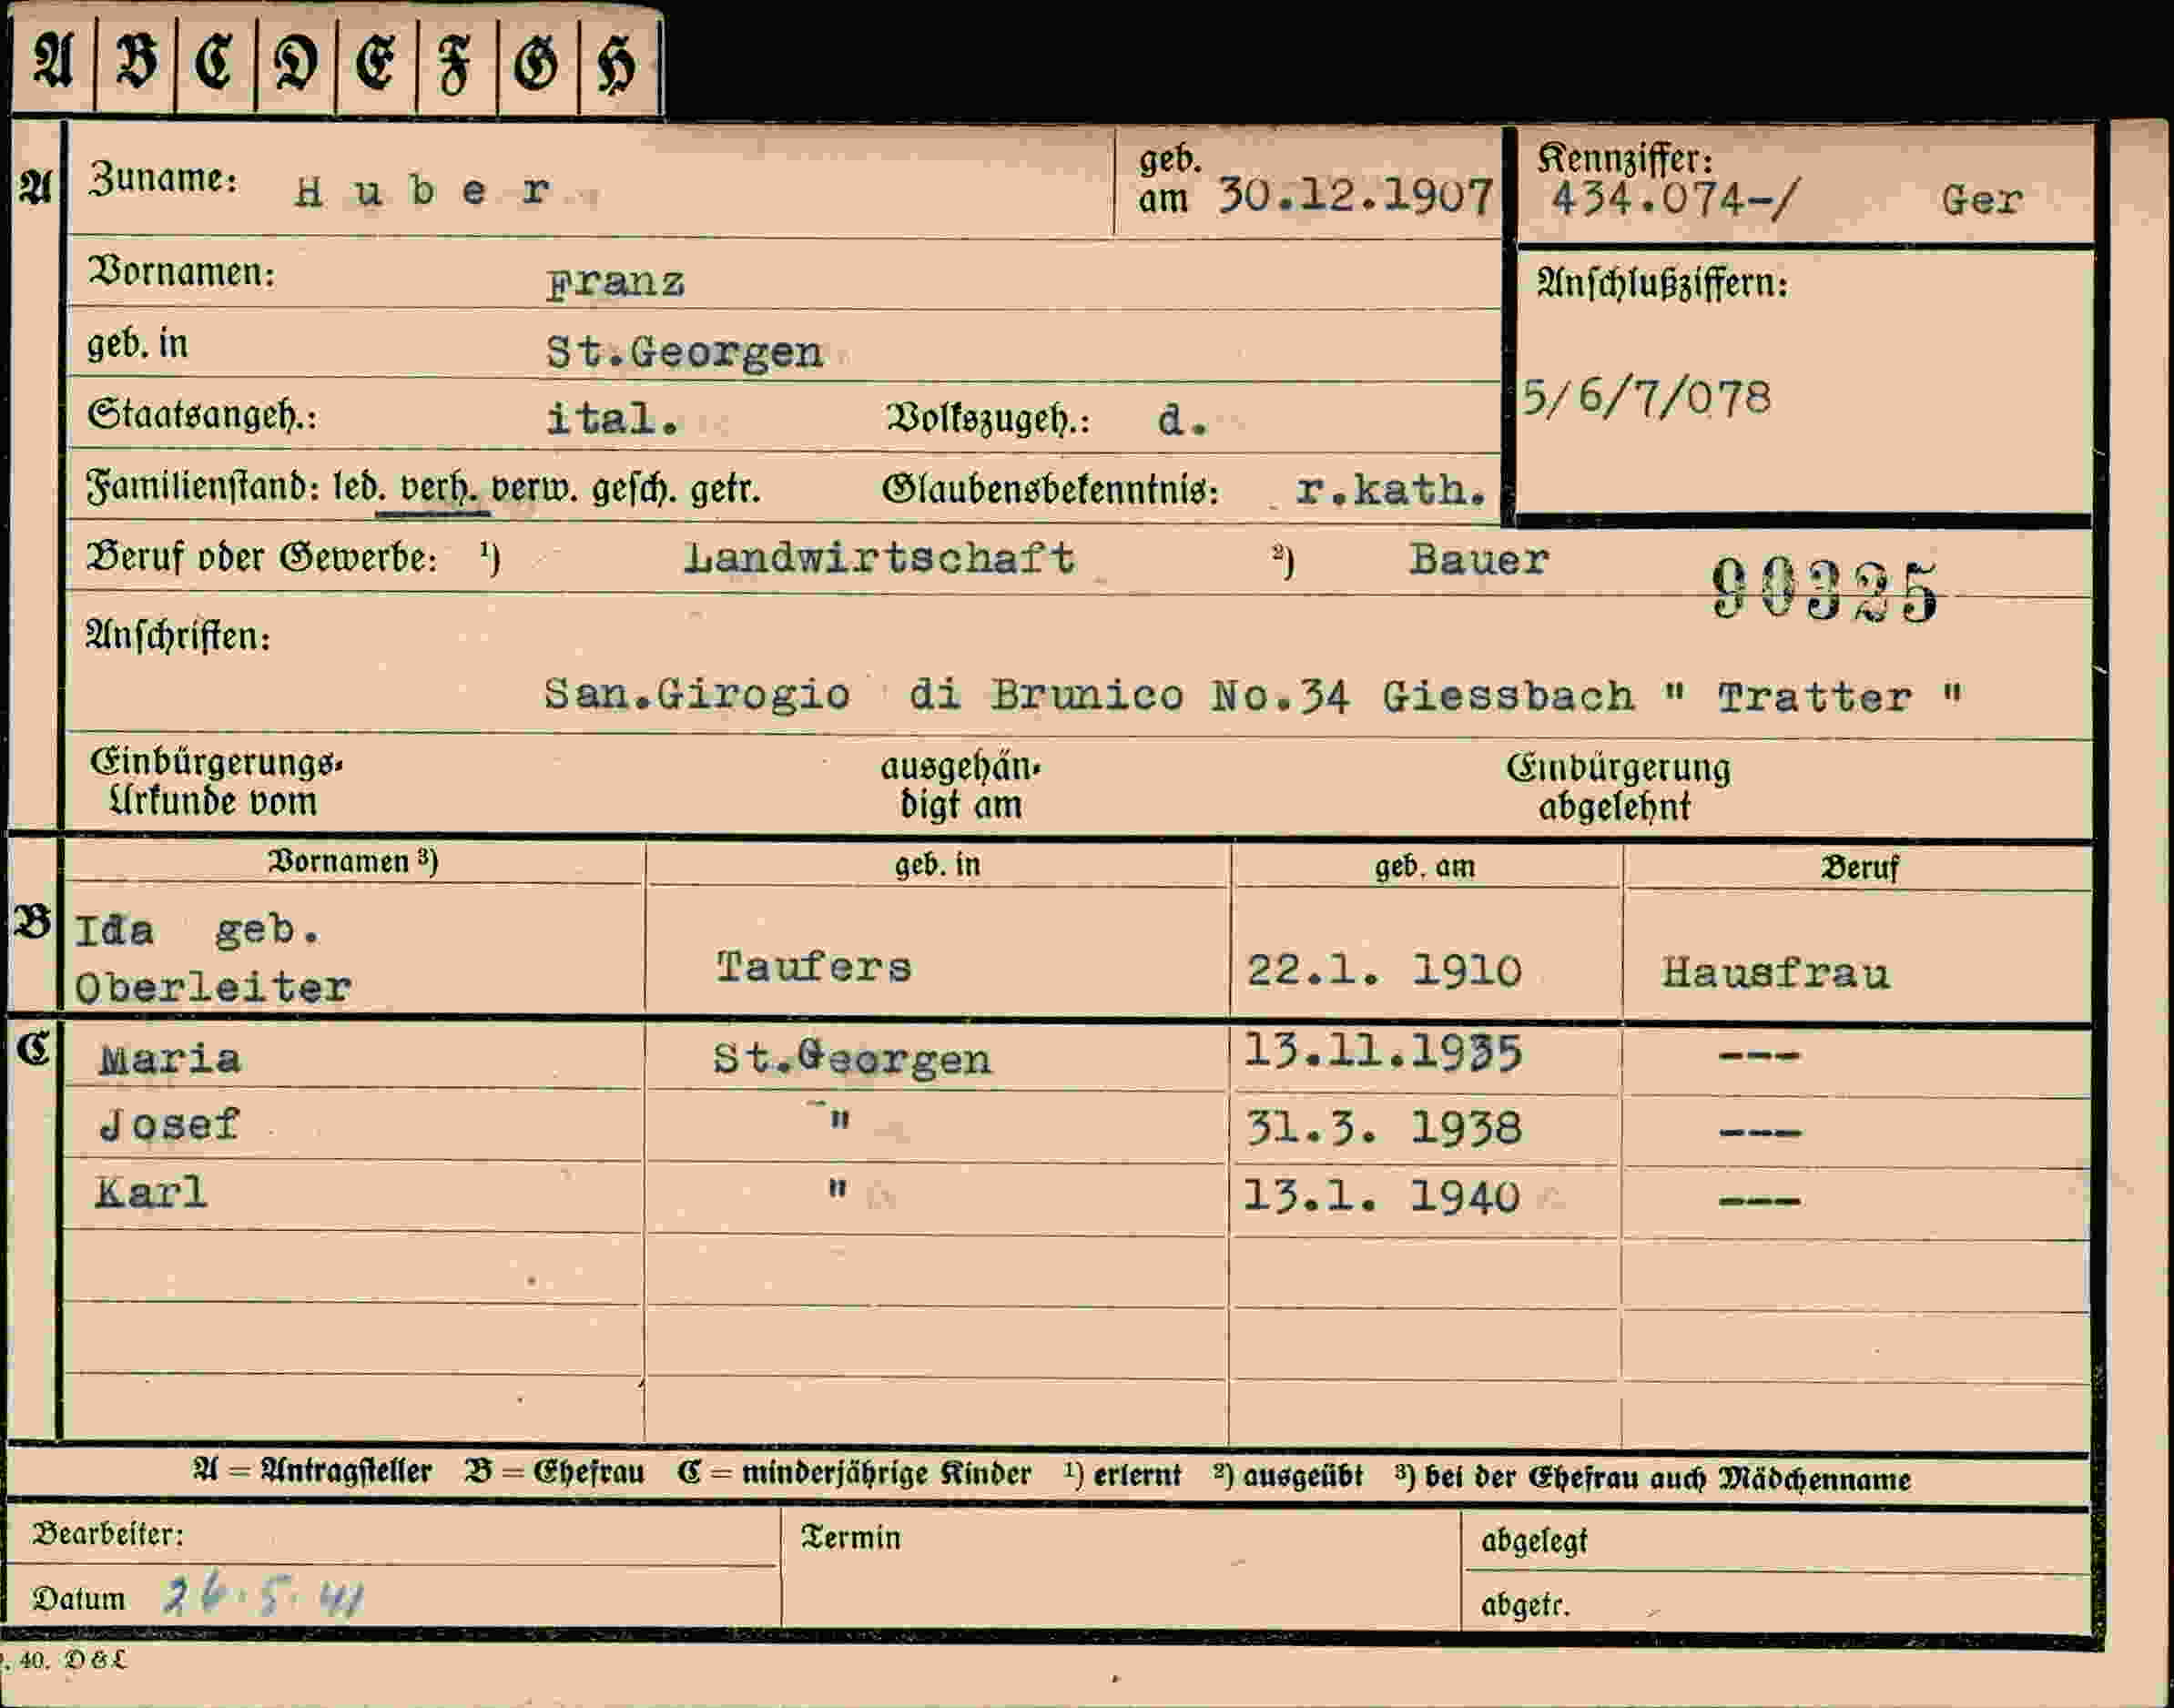 A B C D E F G H
A Zuname: Huber geb. am 30.12.1907 Kennziffer: 434.074-/ Ger
Vornamen: Franz Anschlußziffern:
geb. in St.Georgen
Staatsangeh.: ital. Volkszugeh.: d. 5/6/7/078
Familienstand: led. verh. verw. gesch. getr. Glaubensbekenntnis: r.kath.
Beruf oder Gewerbe: ¹) Landwirtschaft ²) Bauer 90325
Anschriften:
San.Girogio di Brunico No.34 Giessbach " Tratter "
Einbürgerungs- ausgehän- Einbürgerung
Urkunde vom digt am abgelehnt
Vornamen ³) geb. in geb. am Beruf
B Ida geb.
Oberleiter Taufers 22.1. 1910 Hausfrau
C Maria St.Georgen 13.11.1935 ---
Josef " 31.3. 1938 ---
Karl " 13.1. 1940 ---
A = Antragsteller B = Ehefrau C = minderjährige Kinder ¹) erlernt ²) ausgeübt ³) bei der Ehefrau auch Mädchenname
Bearbeiter: Termin abgelegt
Datum 26.5.41 abgetr.
. 40. D & L